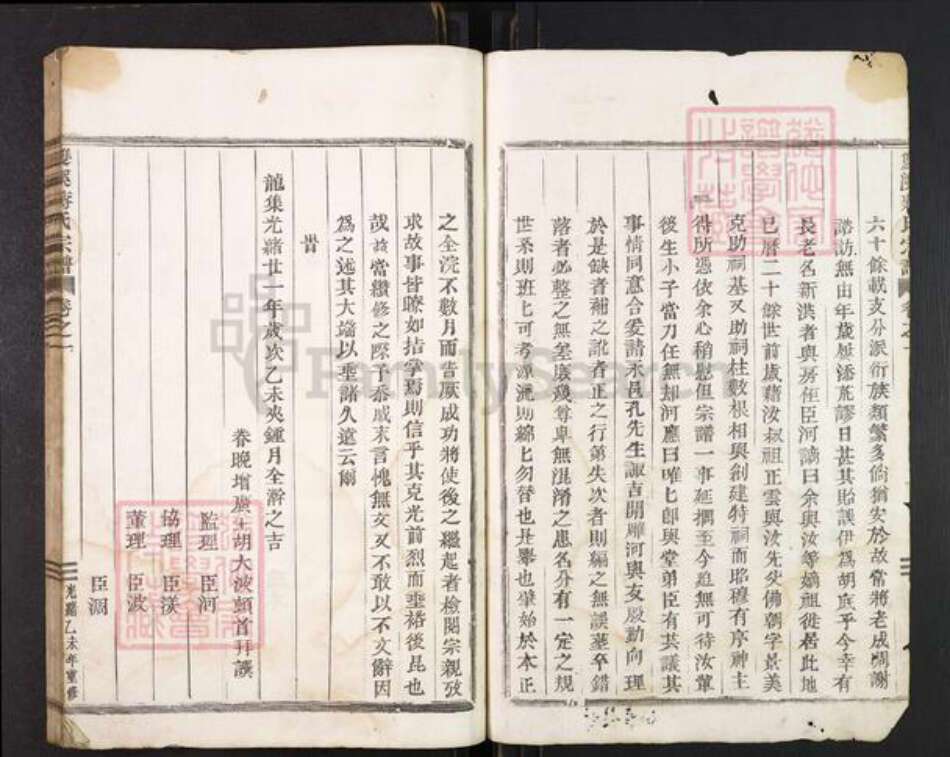 六十餘載支分派衍族類繁多倘猶安於故常將老成凋謝
諮訪無由年歲愆荒謬日甚其貽誤伊爲胡底乎今幸有
長老名新洪者與房侄臣河謫曰余與汝等嫡祖徙居此地
已曆二十餘世前歲藉汝叔祖正雲與汝先父佛朝字景美
克助祠基又助祠柱數根相與創建特祠而昭穆有序神主
得所憑依余心稍慰但宗譜一事延擱至今迨無可待汝輩
後生小子當力任無却河應曰唯匕卽與堂弟臣有其議其
事情同意合爰請永邑孔先生諏吉開雕河與友殷勤向理
於是缺者補之訛者正之行第失次者則編之無誤墓卒錯
落者必整之無差庶幾尊卑無混淆之患名分有一定之規
世系則班匕可考源流則綿匕勿替也是舉也肇始於本正
之全浣不數月而告厥成功將使後之繼起者檢閱宗親攷
求故事皆瞭如指掌焉則信乎其克光前烈而垂裕後昆也
哉茲當纘修之際予忝戚末言愧無文又不敢以不文辭因
爲之述其大端以垂諸久遠云爾
旹
龍集光緒廿一年歲次乙未夾鍾月全澣之吉
眷晚增廣生胡大波頓首拜譔
監理 臣河
協理 臣渼
董理 臣波
臣澗
氏宗譜 卷之一
光緒乙未年重修
FamilySearch